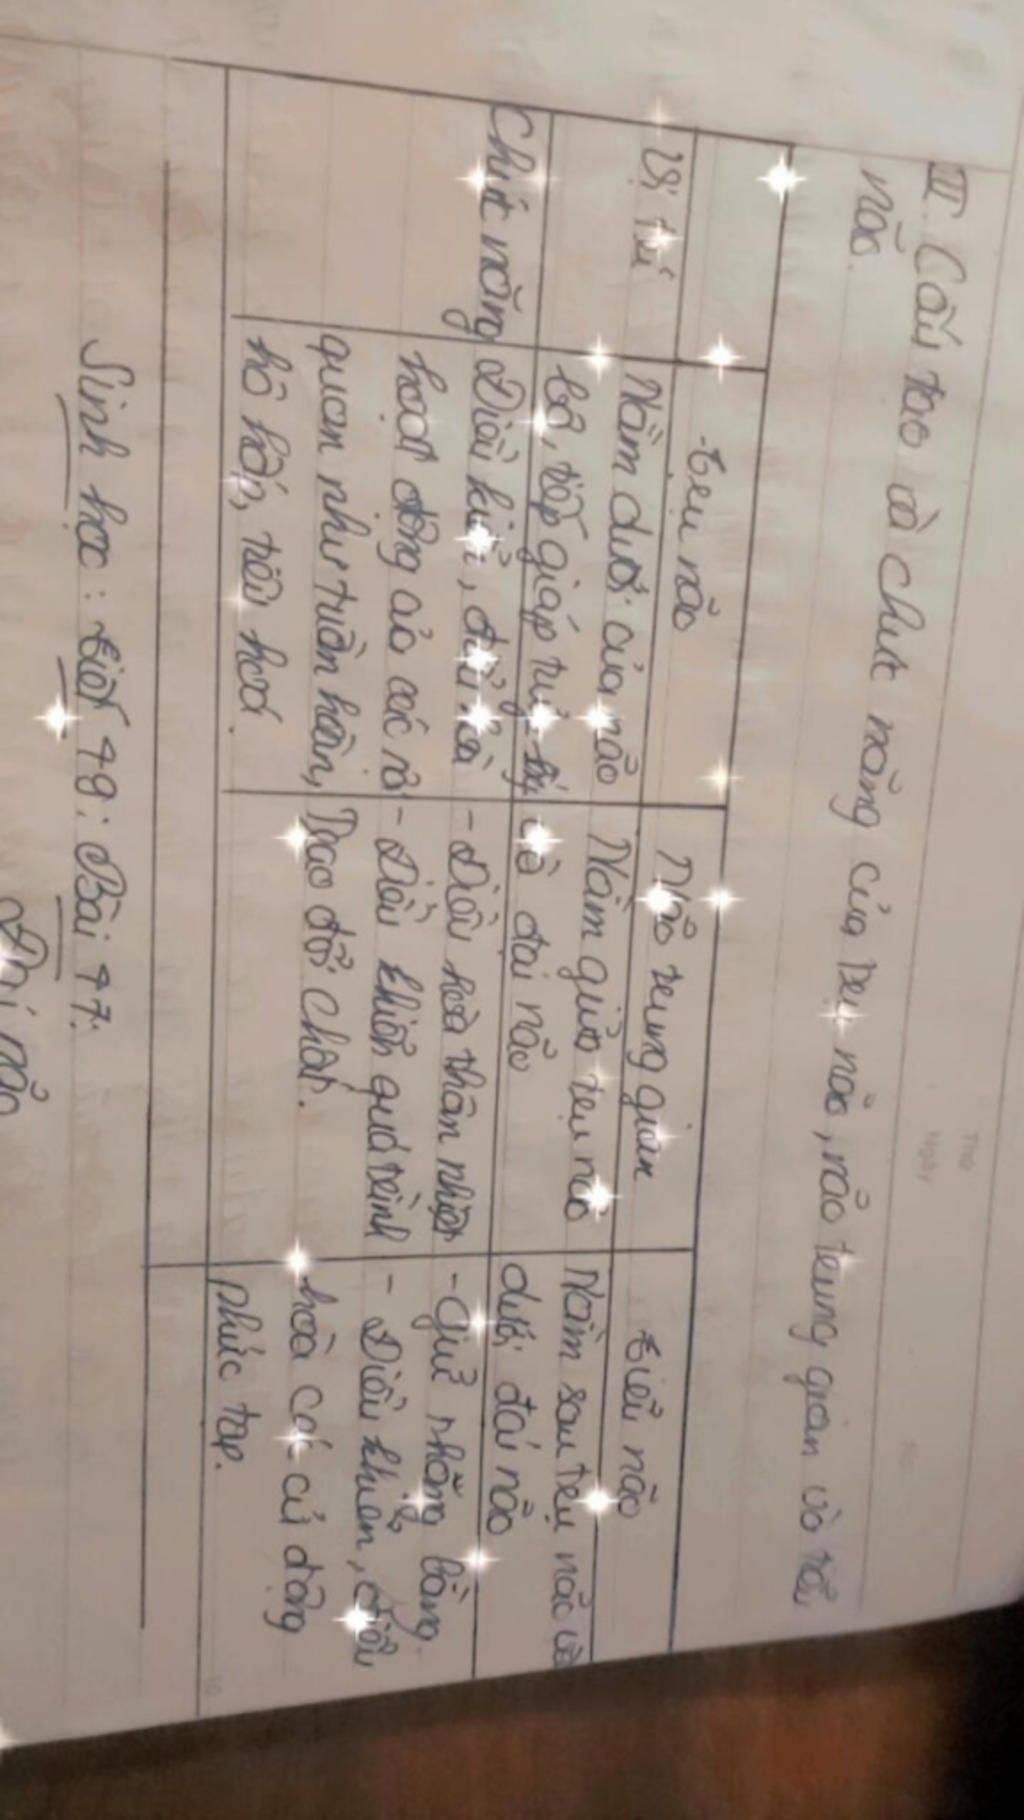 III Cấu tạo và chức năng của trụ não, não trung gian và tiểu
não.
Trụ não
Não trung gian
Tiểu não
Vị trí
Nằm dưới của não
bộ, tiếp giáp tuỷ
Nằm giữa trụ não
và đại não
Nằm sau trụ não và
dưới đại não
Chức năng
Điều khiển, điều hoà
hoạt động của các
quan như tuần hoàn,
hô hấp, tiêu hoá.
- Điều hoà thân nhiệt
- Điều khiển quá trình
Trao đổi chất.
- Giữ thăng bằng.
- Điều khiển, điều
hoà các cử động
phức tạp.
Sinh học: Tiết 48: Bài 47:
Đại não
Thứ
Ngày